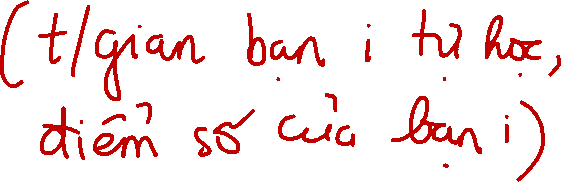 (t/gian bạn i tự học,
điểm số của bạn i)